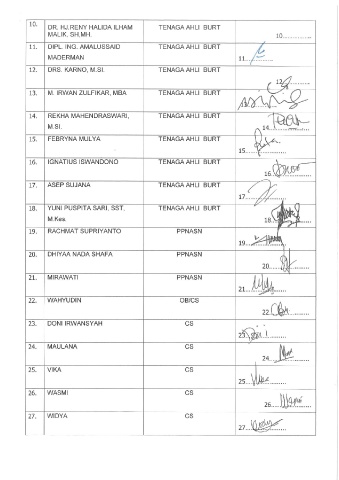 10. DR. HJ.RENY HALIDA ILHAM MALIK, SH.MH. TENAGA AHLI BURT 10...............
11. DIPL. ING. AMALUSSAID MADERMAN TENAGA AHLI BURT 11...............
12. DRS. KARNO, M.SI. TENAGA AHLI BURT 12...............
13. M. IRWAN ZULFIKAR, MBA TENAGA AHLI BURT
14. REKHA MAHENDRASWARI, M.SI. TENAGA AHLI BURT 14...............
15. FEBRYNA MULYA TENAGA AHLI BURT 15...............
16. IGNATIUS ISWANDONO TENAGA AHLI BURT 16...............
17. ASEP SUJANA TENAGA AHLI BURT 17...............
18. YUNI PUSPITA SARI, SST, M.Kes TENAGA AHLI BURT 18...............
19. RACHMAT SUPRIYANTO PPNASN 19...............
20. DHIYAA NADA SHAFA PPNASN 20...............
21. MIRAWATI PPNASN 21...............
22. WAHYUDIN OB/CS 22...............
23. DONI IRWANSYAH CS 23...............
24. MAULANA CS 24...............
25. VIKA CS 25...............
26. WASMI CS 26...............
27. WIDYA CS 27...............